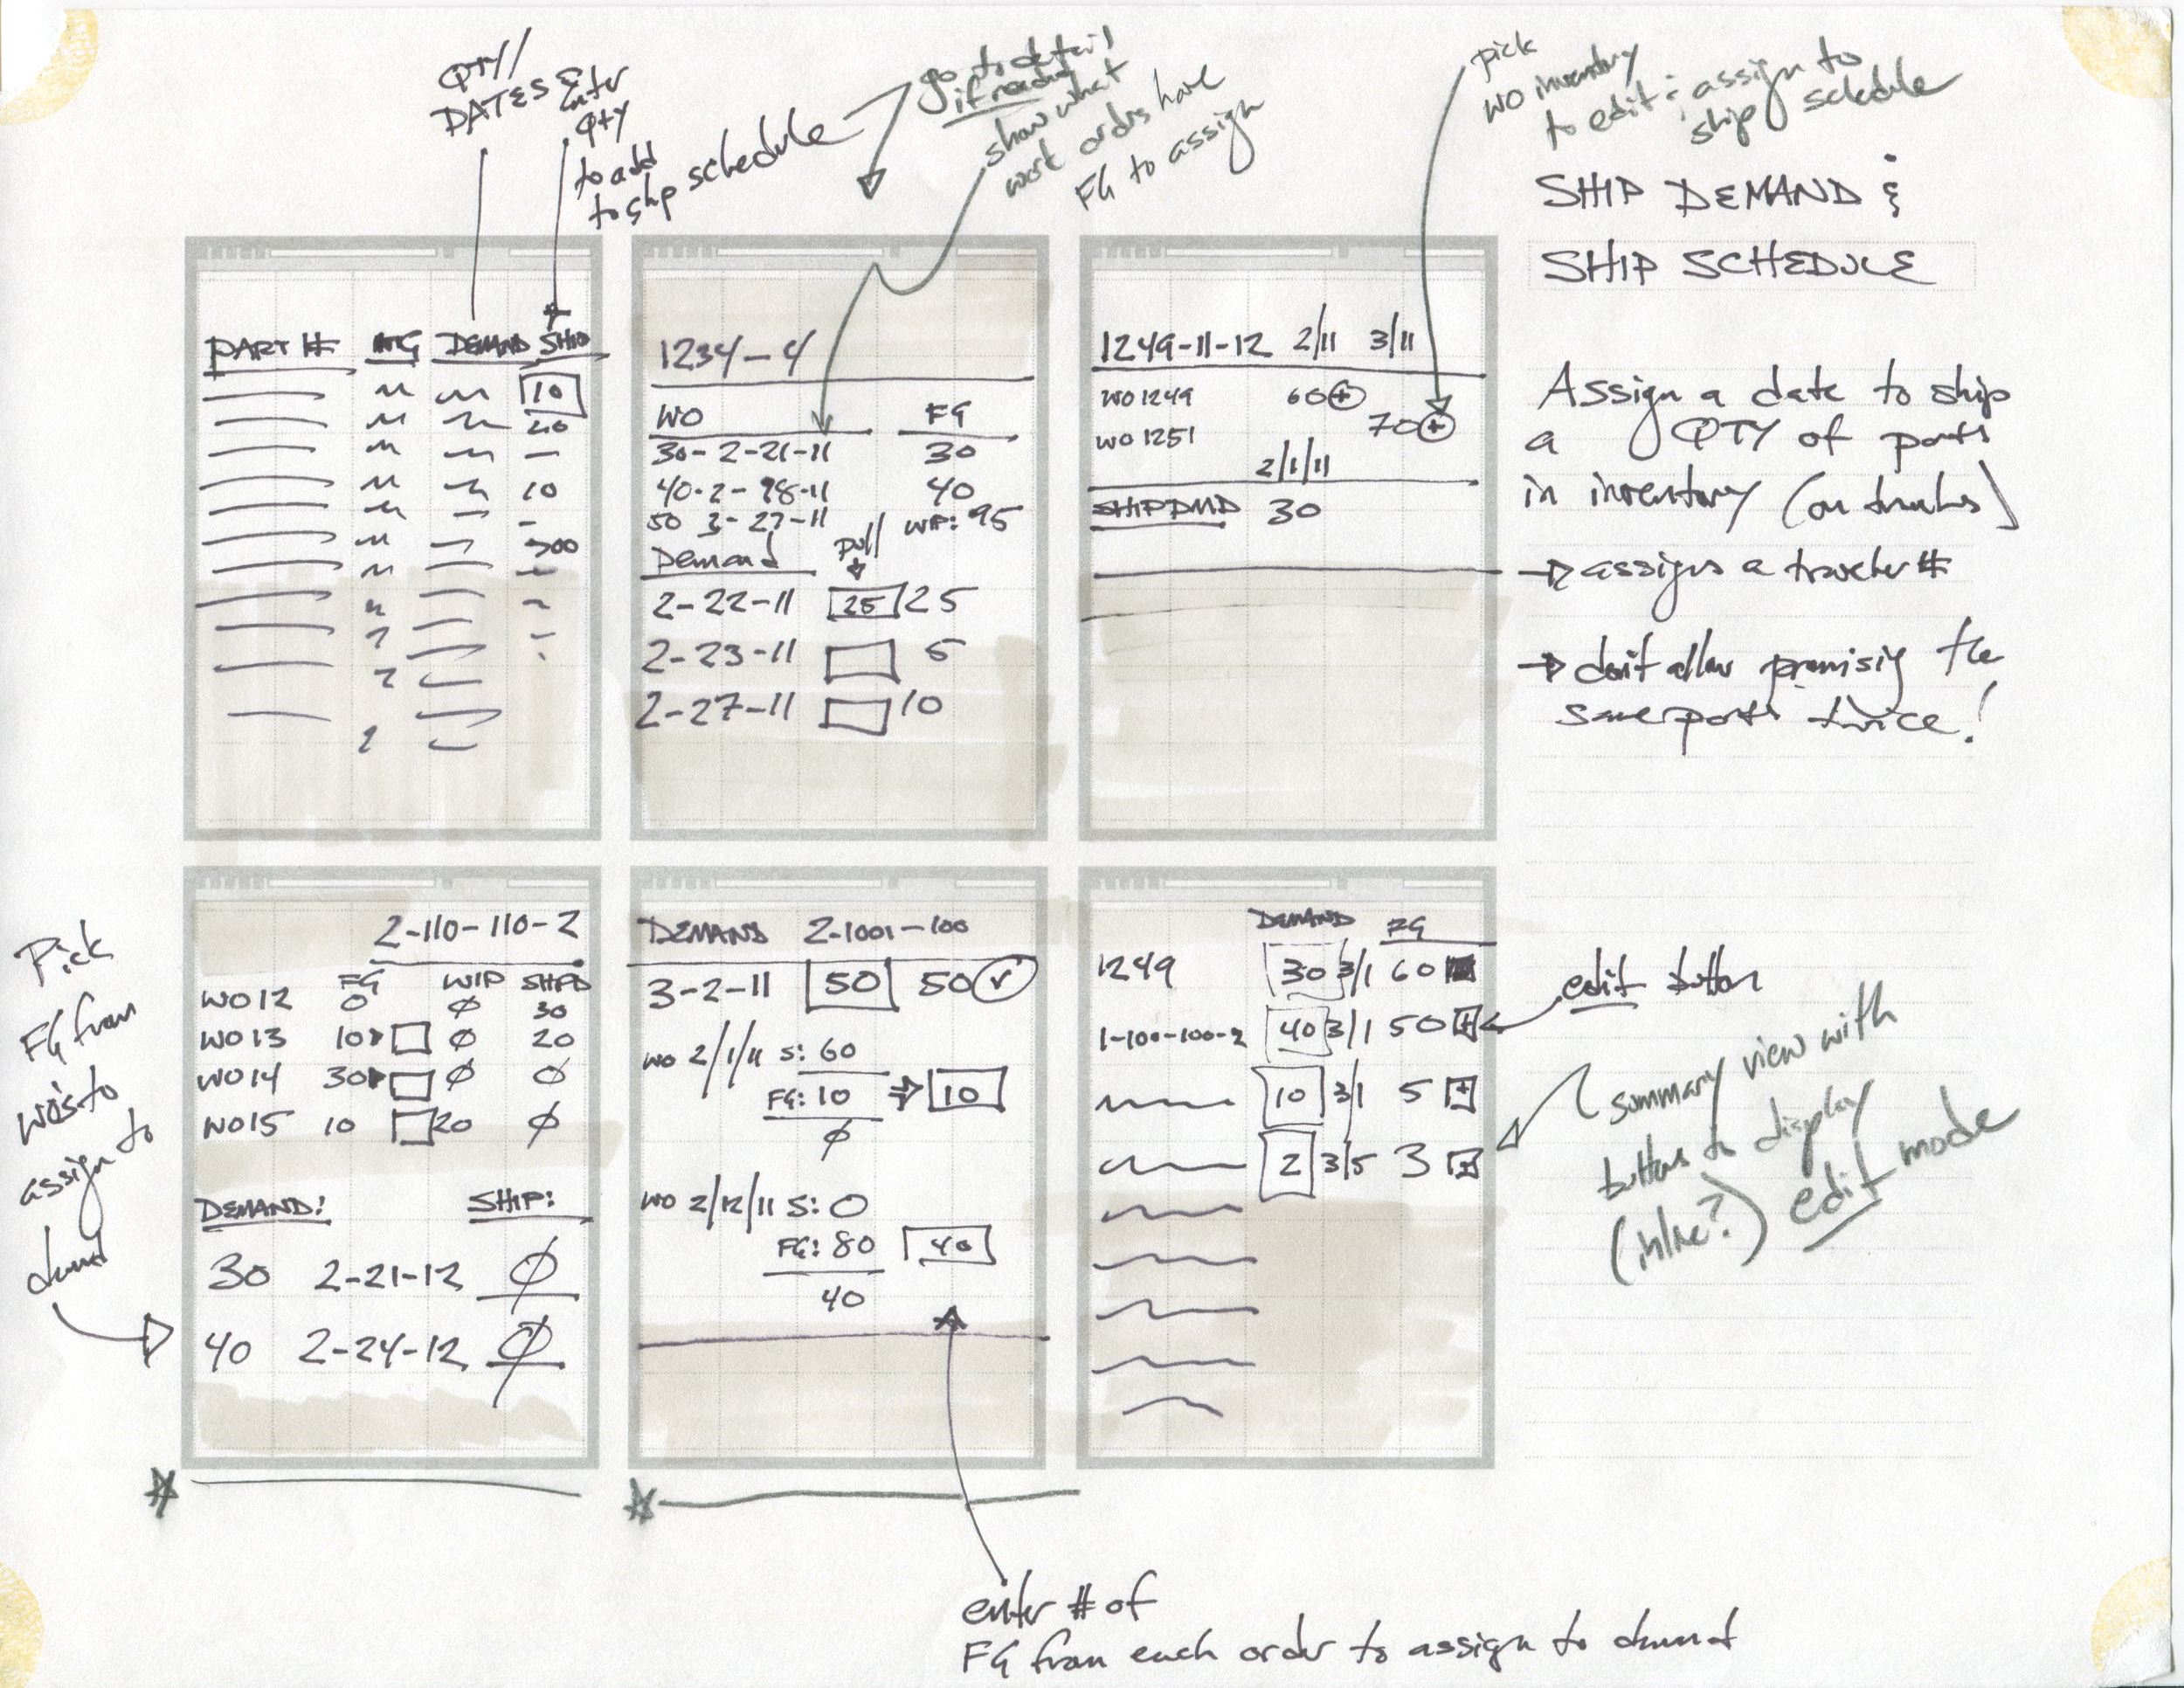 QTY/
DATES &
Enter
QTY
to add
to ship schedule
go to detail
if ready
show what
work orders have
FG to assign
pick
WO inventory
to edit & assign to
ship schedule
SHIP DEMAND &
SHIP SCHEDULE
Assign a date to ship
a QTY of parts
in inventory (on trucks)
→ assigns a traveler #
→ don't allow promising the
same parts twice!
PART # DEMAND SHIP
10
20
-
10
-
300
1234-4
WO FG
30- 2-21-11 30
40-2-98-11 40
50 3-27-11 WIP: 95
Demand pull
2-22-11 25 25
2-23-11 5
2-27-11 10
1249-11-12 2/11 3/11
WO 1249 60 +
WO 1251 70 +
2/1/11
SHIP DMD 30
Pick
FG from
WO's to
assign to
demand
2-110-110-2
FG WIP SHPD
WO12 0 Ø 30
WO13 10 Ø 20
WO14 30 Ø Ø
WO15 10 20 Ø
DEMAND: SHIP:
30 2-21-12 Ø
40 2-24-12 Ø
DEMAND 2-1001-100
3-2-11 50 50 ✓
WO 2/1/11 S: 60
FG: 10 ⇒ 10
Ø
WO 2/12/11 S: 0
FG: 80 40
40
DEMAND FG
1249 30 3/1 60
1-100-100-2 40 3/1 50 +
10 3/1 5 +
2 3/5 3 +
edit button
summary view with
buttons to display
(inline?) edit mode
enter # of
FG from each order to assign to demand